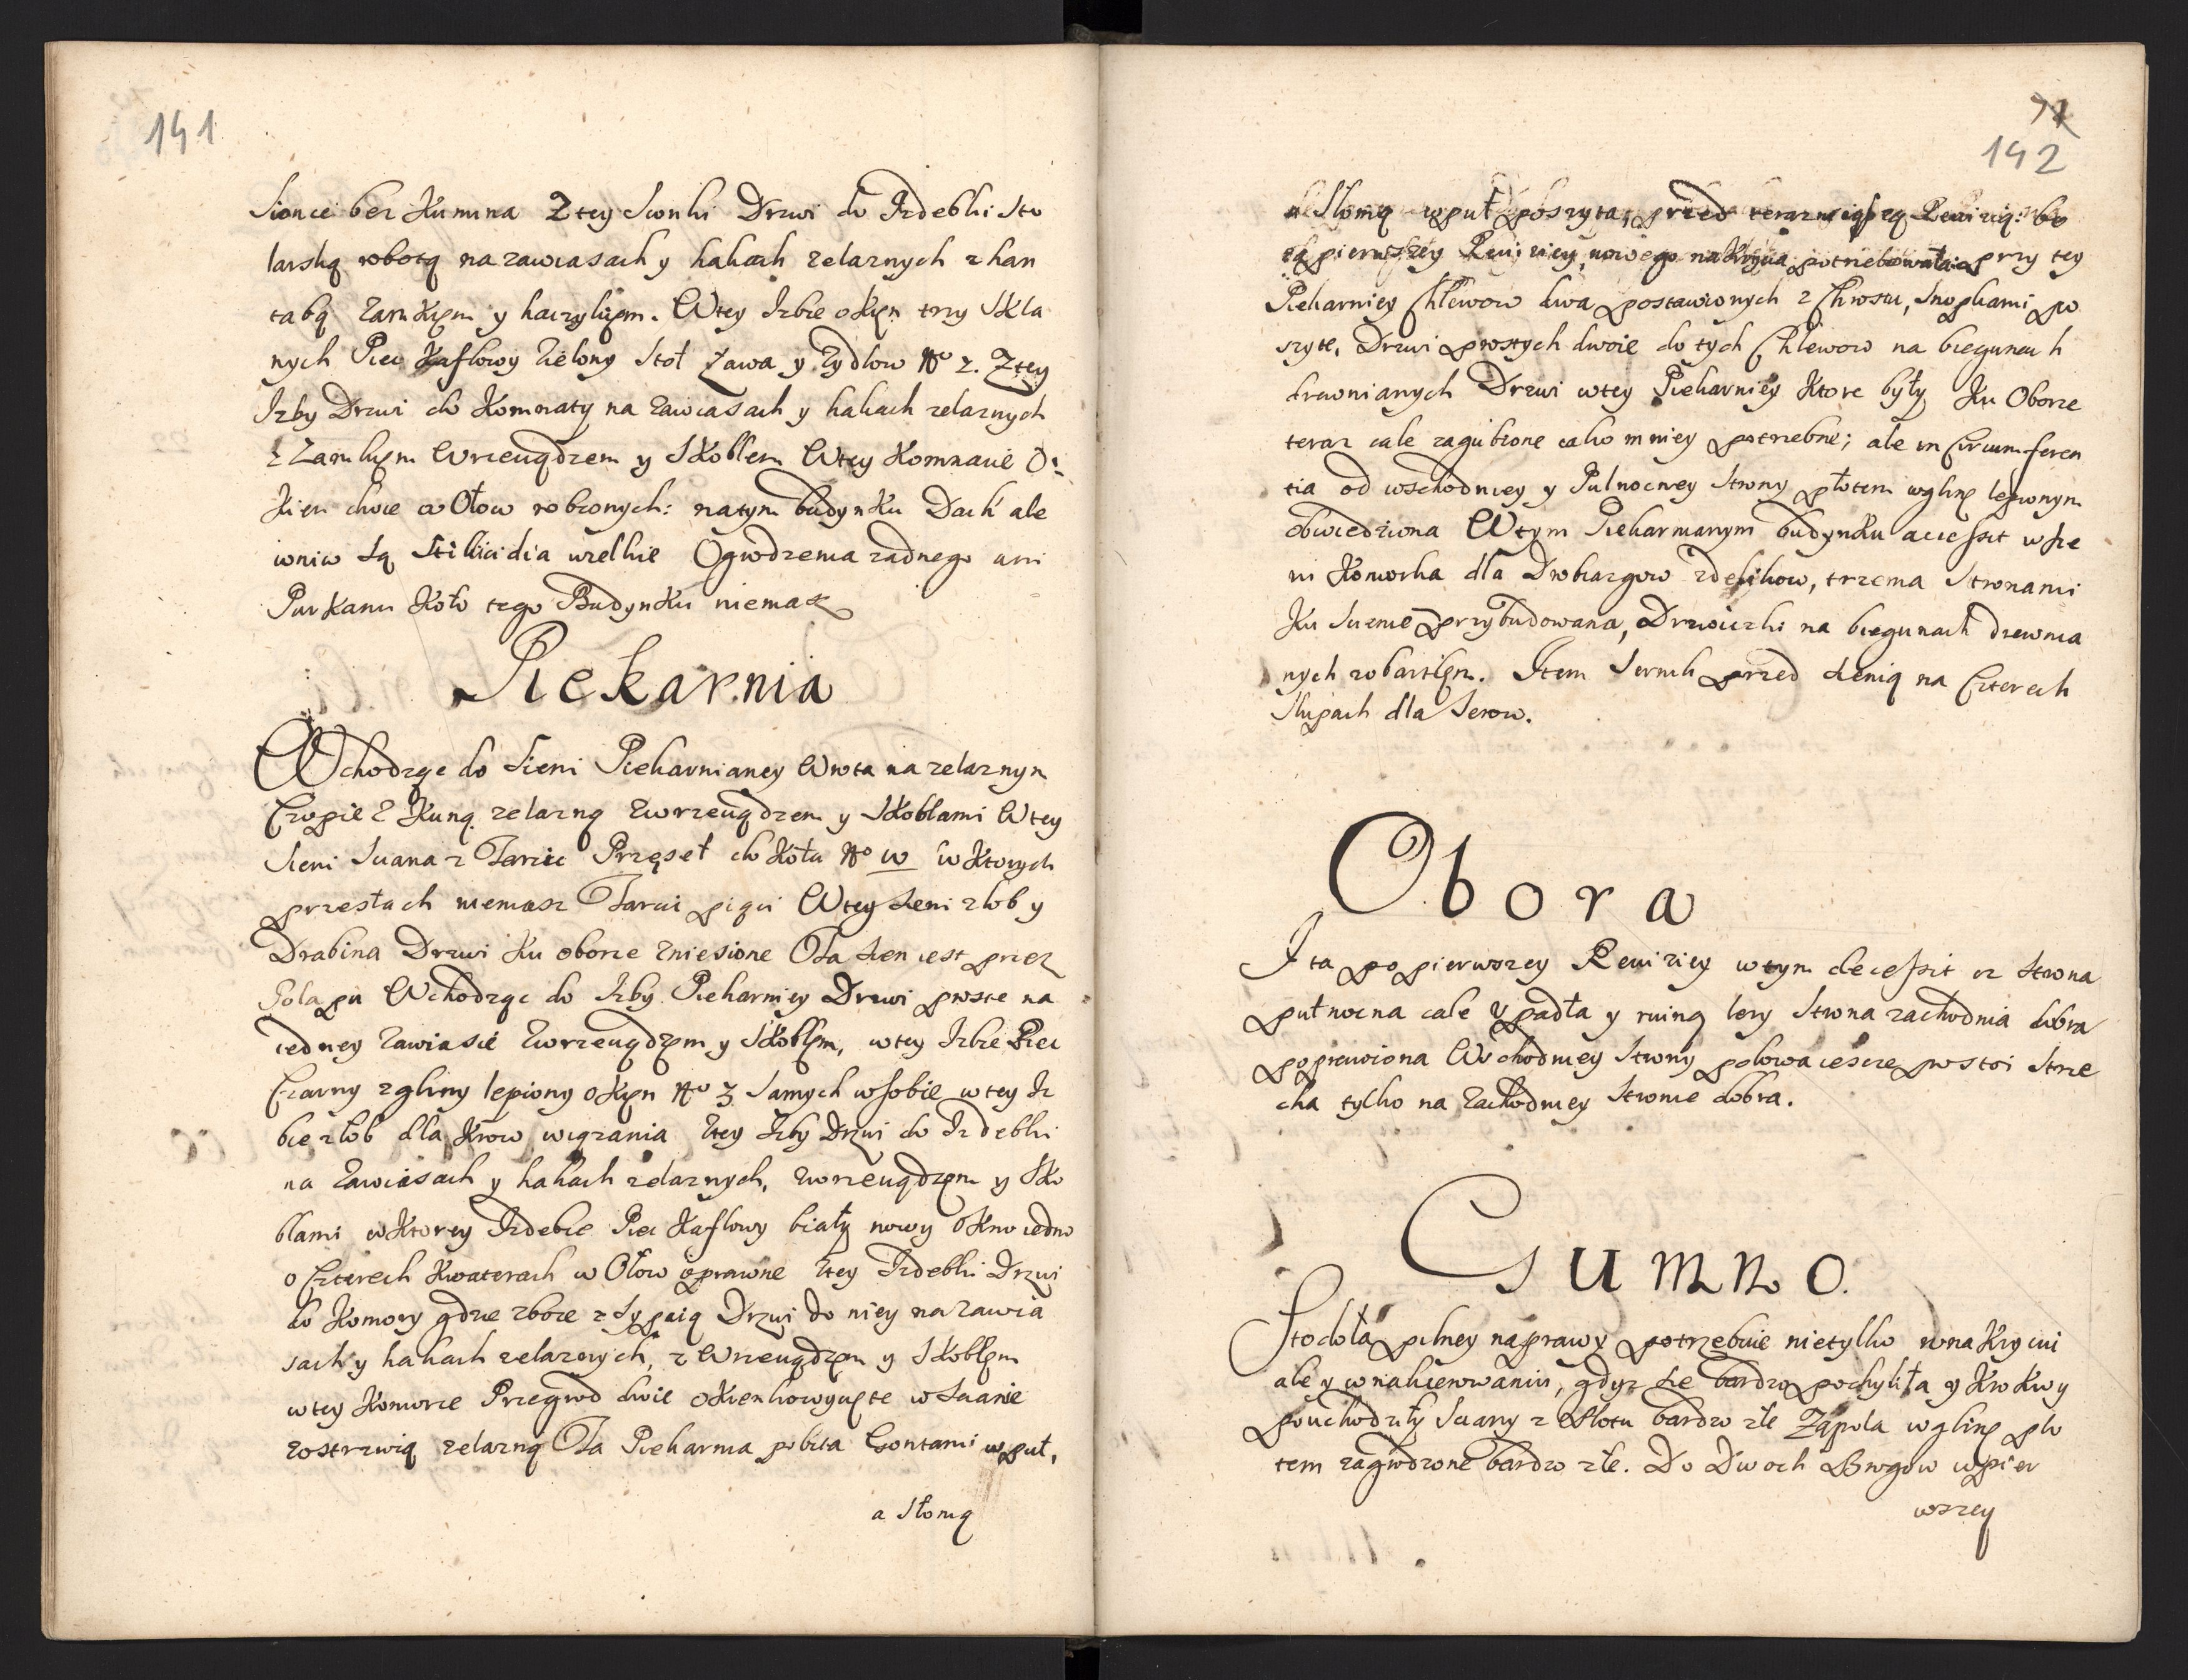 141
Sionce bez Kumina Z tey Sionki Drzwi do Izdebki Sto
larską robotą na zawiasach y hakach zelaznych z han
tabą Zamkiem y haczykiem. W tey Izbie okien trzy Skla
nych Piec Kaflowy Zielony Stoł Ława y Zydlow No 2. Z tey
Izby Drzwi do Komnaty na zawiasach y hakach zelaznych
z Zamkiem Wrzeciądzem y Skoblem W tey Komnacie O:
kien dwie w Ołow robionych: na tym budynku Dach ale
w niw są Stillicidia wielkie Ogrodzenia zadnego ani
Parkanu Koło tego Budynku niemasz
Piekarnia
Wchodząc do Sieni Piekarnianey Wrota na zelaznym
Czopie z Kuną zelazną z wrzeciądzem y Skoblami W tey
Sieni Sciana z Tarcic Przęseł do Koła No w Ktorych
przesłach niemasz Tarcic pięci W tey Sieni złob y
Drabina Drzwi Ku oborze zniesione Ta Sien iest przez
Pola pu Wchodząc do Izby Piekarniey Drzwi proste na
iedney Zawiasie z wrzeciądzem y Skoblem, w tey Izbie Piec
Czarny z gliny lepiony okien No 3 Samych w sobie w tey Iz
bie złob dla Krow wiązania z tey Izby Drzwi do Izdebki
na Zawiasach y hakach zelaznych, z wrzeciądzem y Sko
blami w Ktorey Izdebce Piec Kaflowy biały nowy Okno iedno
o Czterech Kwaterach w Ołow oprawne z tey Izdebki Drzwi
do Komory gdzie zboże zsypaią Drzwi do niey na zawia
sach y hakach zelaznych, z Wrzeciądzem y Skoblem
w tey Komorze Przegrod dwie okienko wycięte w Scianie
z ostrzwią zelazną Ta Piekarnia pobita Gontami w puł,
a Słomą
71
142
a Słomą w puł poszyta, przed terazneiszą Rewizią: bo
od pierwszey Rewiziey nowego nakrycia potrzebowała: przy tey
Piekarniey Chlewow dwa postawionych z Chrostu, Snopkami po
szyte, Drzwi prostych dwoie do tych Chlewow na biegunach
drewnianych Drzwi w tey Piekarniey Ktore były Ku Oborze
teraz cale zagubione iako mniey potrzebne; ale in Circumferen
tia od wschodniey y Pulnocney Strony płotem w glinę lepionym
obwiedziona W tym Piekarnianym budynku accessit w Sie
ni Komorka dla Drobiazgow z desikow, trzema Stronami
Ku Scienie przybudowana, Drzwiczki na biegunach drewnia
nych z obartlem. Item Sernik przed Sienią na Czterech
Słupach dla Serow.
Obora
I ta po pierwszey Rewiziey w tym decessit iz Strona
pułnocna cale upadła y ruiną lezy Strona zachodnia dobra
poprawiona Wschodniey Strony połowa ieszcze prostoi Strze
cha tylko na Zachodniey Stronie dobra.
Gumno.
Stodoła pilney naprawy potrzebuie nietylko w nakryciu
ale y w nakierowaniu, gdyz sie bardzo pochyliła y Krokwy
pouchodziły Sciany z Płotu bardzo złe Zapola w glinę pło
tem zagrodzone bardzo złe. Do Dwoch Brogow w pier
wszey